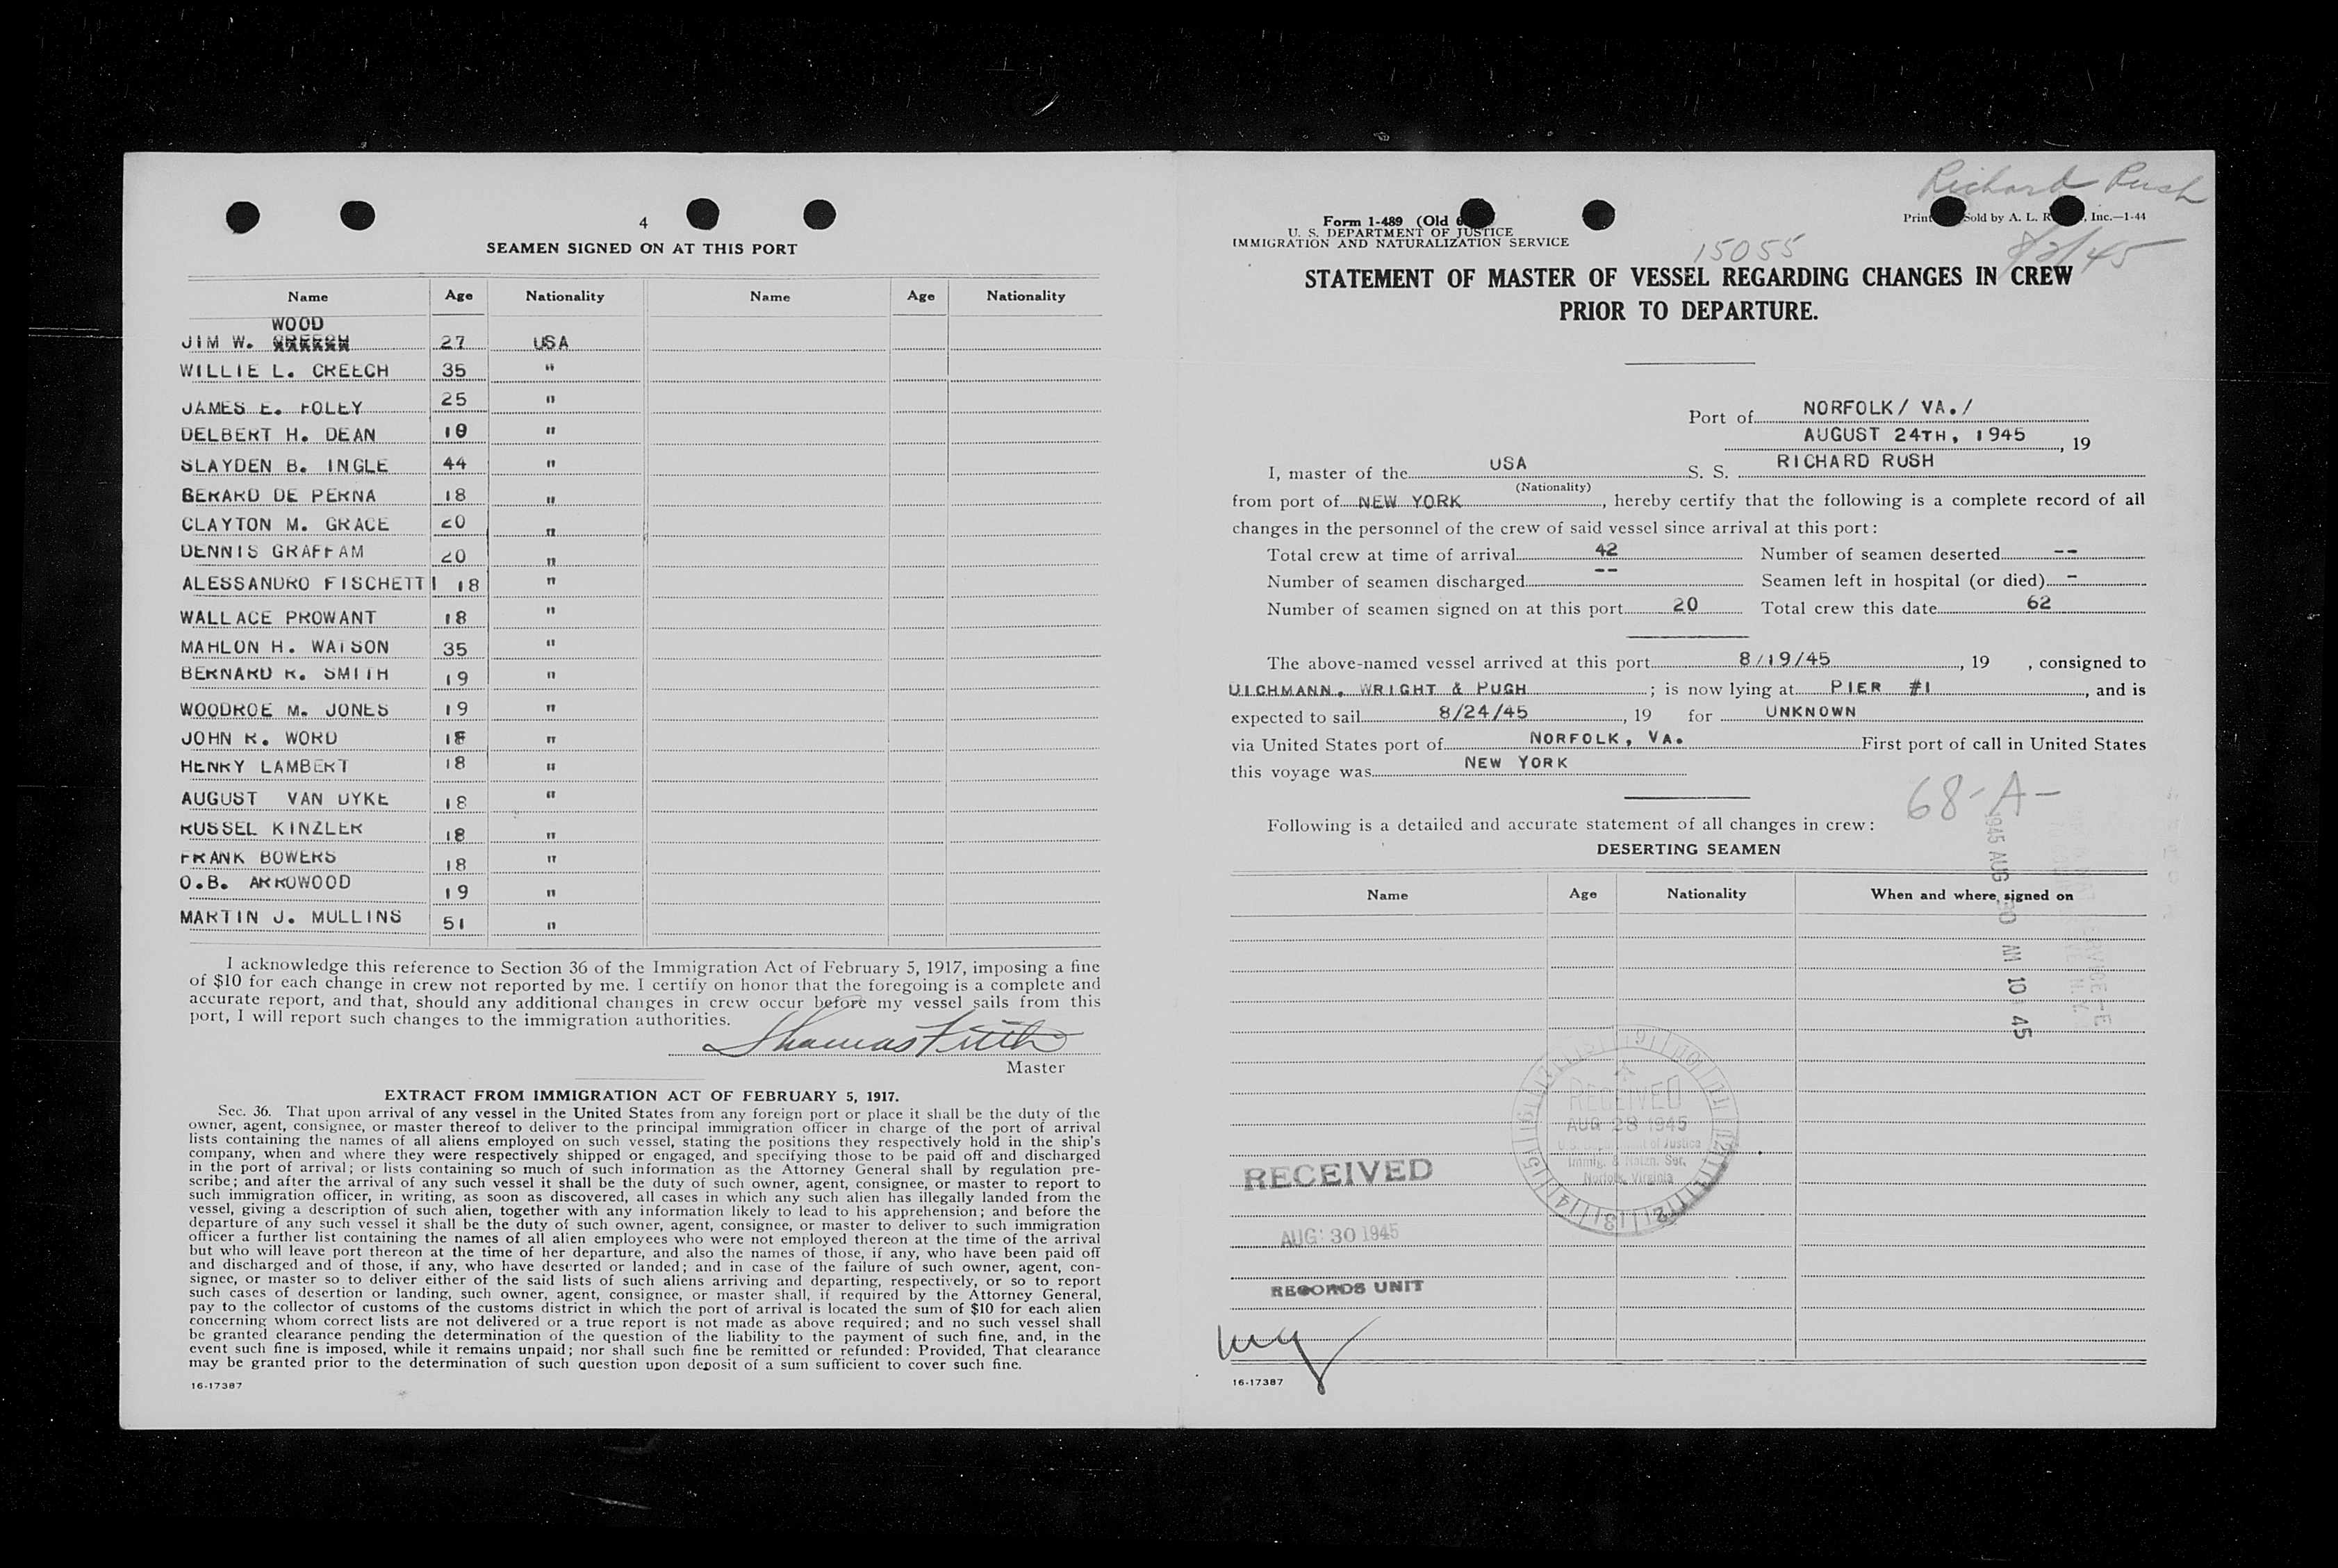 4
SEAMEN SIGNED ON AT THIS PORT
Name Age Nationality Name Age Nationality
WOOD
JIM W. CREECH 27 USA
WILLIE L. CREECH 35 "
JAMES E. FOLEY 25 "
DELBERT H. DEAN 18 "
SLAYDEN B. INGLE 44 "
BERARD DE PERNA 18 "
CLAYTON M. GRACE 20 "
DENNIS GRAFFAM 20 "
ALESSANDRO FISCHETTI 18 "
WALLACE PROWANT 18 "
MAHLON H. WATSON 35 "
BERNARD R. SMITH 19 "
WOODROE M. JONES 19 "
JOHN R. WORD 18 "
HENRY LAMBERT 18 "
AUGUST VAN DYKE 18 "
RUSSEL KINZLER 18 "
FRANK BOWERS 18 "
O.B. ARROWOOD 19 "
MARTIN J. MULLINS 51 "
I acknowledge this reference to Section 36 of the Immigration Act of February 5, 1917, imposing a fine
of $10 for each change in crew not reported by me. I certify on honor that the foregoing is a complete and
accurate report, and that, should any additional changes in crew occur before my vessel sails from this
port, I will report such changes to the immigration authorities.
Thomas Firth
Master
EXTRACT FROM IMMIGRATION ACT OF FEBRUARY 5, 1917.
Sec. 36. That upon arrival of any vessel in the United States from any foreign port or place it shall be the duty of the
owner, agent, consignee, or master thereof to deliver to the principal immigration officer in charge of the port of arrival
lists containing the names of all aliens employed on such vessel, stating the positions they respectively hold in the ship's
company, when and where they were respectively shipped or engaged, and specifying those to be paid off and discharged
in the port of arrival; or lists containing so much of such information as the Attorney General shall by regulation pre-
scribe; and after the arrival of any such vessel it shall be the duty of such owner, agent, consignee, or master to report to
such immigration officer, in writing, as soon as discovered, all cases in which any such alien has illegally landed from the
vessel, giving a description of such alien, together with any information likely to lead to his apprehension; and before the
departure of any such vessel it shall be the duty of such owner, agent, consignee, or master to deliver to such immigration
officer a further list containing the names of all alien employees who were not employed thereon at the time of the arrival
but who will leave port thereon at the time of her departure, and also the names of those, if any, who have been paid off
and discharged and of those, if any, who have deserted or landed; and in case of the failure of such owner, agent, con-
signee, or master so to deliver either of the said lists of such aliens arriving and departing, respectively, or so to report
such cases of desertion or landing, such owner, agent, consignee, or master shall, if required by the Attorney General,
pay to the collector of customs of the customs district in which the port of arrival is located the sum of $10 for each alien
concerning whom correct lists are not delivered or a true report is not made as above required; and no such vessel shall
be granted clearance pending the determination of the question of the liability to the payment of such fine, and, in the
event such fine is imposed, while it remains unpaid; nor shall such fine be remitted or refunded: Provided, That clearance
may be granted prior to the determination of such question upon deposit of a sum sufficient to cover such fine.
16-17387
Richard Rush
Form 1-489 (Old
U. S. DEPARTMENT OF JUSTICE
IMMIGRATION AND NATURALIZATION SERVICE
Sold by A. L. Inc.—1-44
15055
STATEMENT OF MASTER OF VESSEL REGARDING CHANGES IN CREW
PRIOR TO DEPARTURE.
Port of NORFOLK/ VA./
AUGUST 24TH, 1945, 19
I, master of the USA S. S. RICHARD RUSH
(Nationality)
from port of NEW YORK, hereby certify that the following is a complete record of all
changes in the personnel of the crew of said vessel since arrival at this port:
Total crew at time of arrival 42 Number of seamen deserted --
Number of seamen discharged -- Seamen left in hospital (or died) -
Number of seamen signed on at this port 20 Total crew this date 62
The above-named vessel arrived at this port 8/19/45, 19 , consigned to
DICHMANN, WRIGHT & PUGH; is now lying at PIER #1, and is
expected to sail 8/24/45, 19 for UNKNOWN
via United States port of NORFOLK, VA. First port of call in United States
this voyage was NEW YORK
68-A-
Following is a detailed and accurate statement of all changes in crew:
DESERTING SEAMEN
Name Age Nationality When and where signed on
1945 AUG 30 AM 10 45
RECEIVED
AUG 28 1945
U.S. Department of Justice
Immig. & Natzn. Ser.
Norfolk, Virginia
RECEIVED
AUG 30 1945
RECORDS UNIT
16-17387